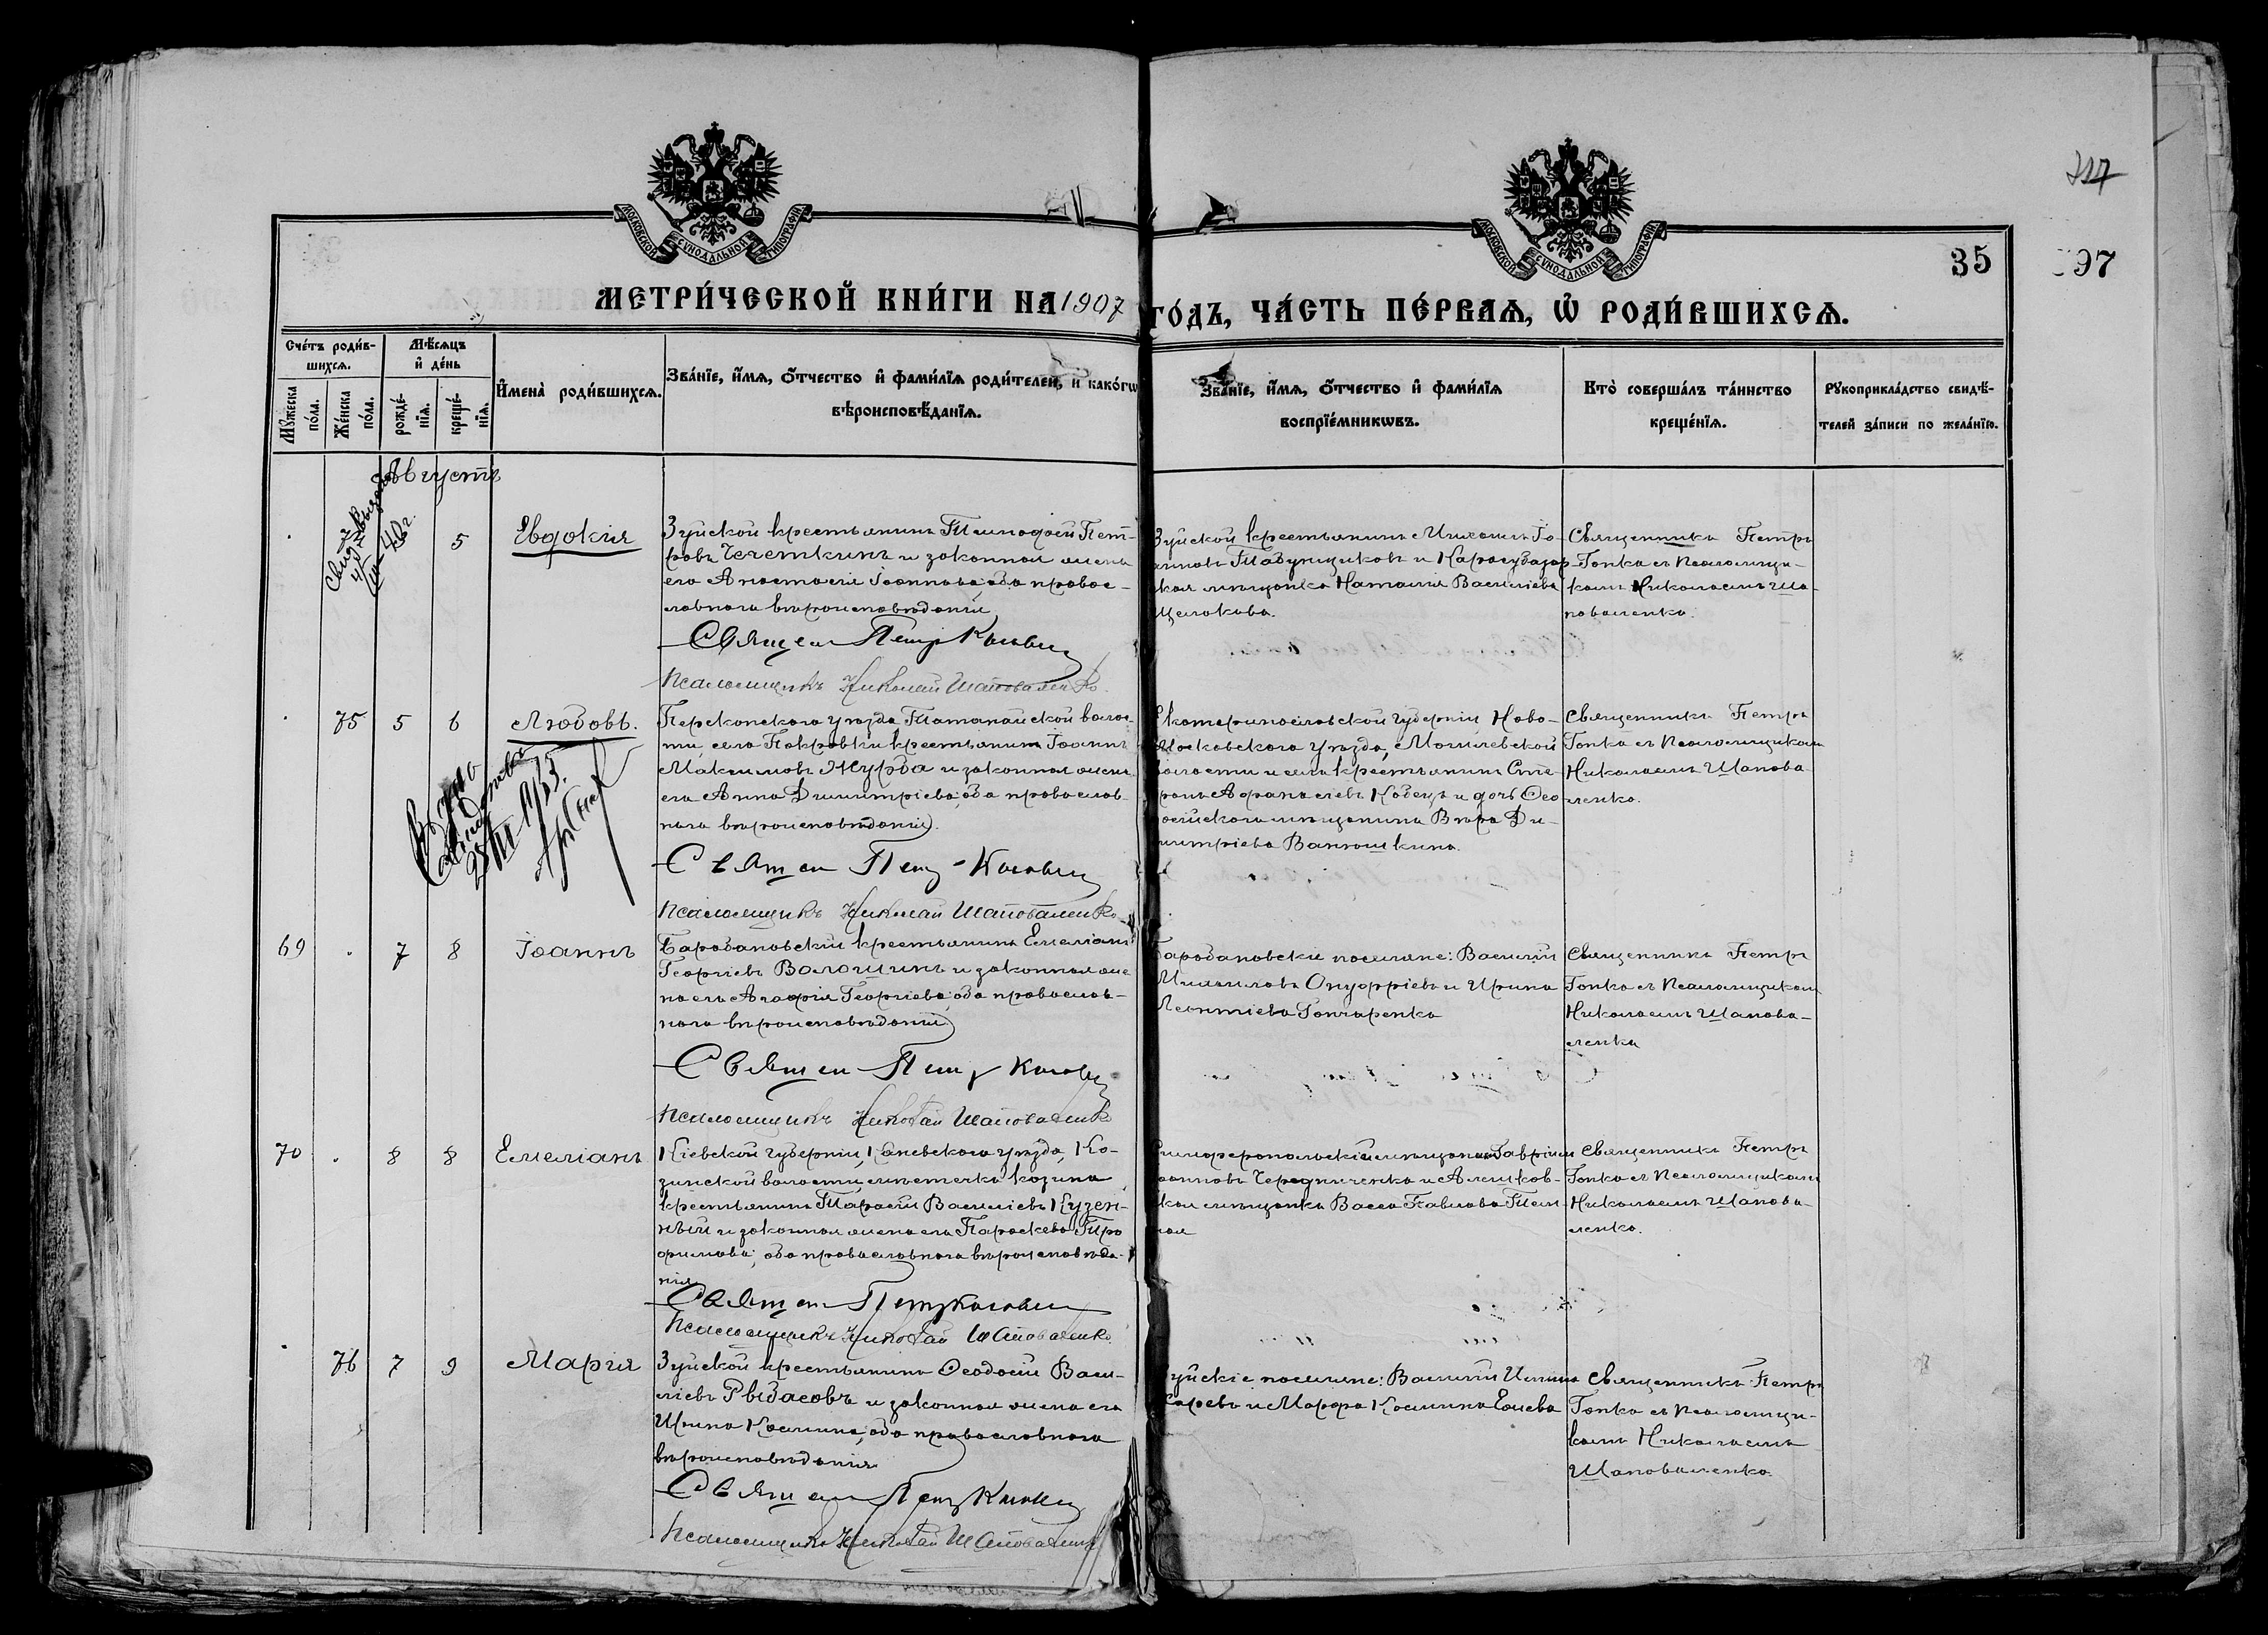 МОСКОВСКОЙ СѴНОДАЛЬНОЙ ТИПОГРАФІИ
МОСКОВСКОЙ СѴНОДАЛЬНОЙ ТИПОГРАФІИ
35
97
МЕТРИ́ЧЕСКОЙ КНИ́ГИ НА 1907
ГО́ДЪ, ЧА́СТЬ ПЕ́РВАѦ, Ѽ РОДИ́ВШИХСѦ.
Сче́тъ роди́в-
шихсѧ.
Мꙋжеска
по́ла.
Же́нска
по́ла.
Мѣ́сѧцъ
и҆ де́нь
рожде́-
нїѧ.
креще́-
нїѧ.
И҆мена̀ роди́вшихсѧ.
Зва́нїе, и҆́мѧ, ѻ҆́тчество и҆ фами́лїѧ роди́телей, и҆ како́гѡ
вѣроисповѣ́данїѧ.
Зва́нїе, и҆́мѧ, ѻ҆́тчество и҆ фами́лїѧ
воспрїе́мникѡвъ.
Кто̀ соверша́лъ та́инство
креще́нїѧ.
Рꙋкоприкла́дство свидѣ́-
телей за́писи по жела́нїю.
Августъ
5
Евдокія
Зуйской крестьянинъ Тимофей Пет-
ровъ Чечеткинъ и законная жена
его Анастасія Іоаннова, оба правос-
лавнаго вѣроисповѣданія
Псаломщикъ Николай Шаповаленко.
Зуйской крестьянинъ Михаилъ Іо-
анновъ Табунщиковъ и Карасубазар-
ская мѣщанка Наталія Васильева
Щелокова.
Священникъ Петръ
Гопка съ Псаломщи-
комъ Николаемъ Ша-
поваленко.
75 5 6
Любовь.
Перекопскаго уѣзда Татанайской волос-
ти, села Покровки крестьянинъ Іоаннъ
Максимовъ Журба и законная жена
его Анна Димитріева, оба православ-
наго вѣроисповѣданія.
Псаломщикъ Николай Шаповаленко
Екатеринославской губерніи Ново-
московскаго уѣзда, Могилевской
волости и села крестьянинъ
Аѳанасіевъ Кобецъ и дочь Ѳео-
досійскаго мѣщанина Вѣра Ди-
митріева Ванюшкина.
Священникъ Петръ
Гопка съ Псаломщикомъ
Николаемъ Шапова-
ленко.
69 7 8
Іоаннъ
Барабановскій крестьянинъ Емеліанъ
Георгіевъ Волошинъ и законная же-
на его Агафія Георгіева, оба православ-
наго вѣроисповѣданія
Псаломщикъ Николай Шаповаленко
Барабановскіе поселяне: Василій
Онуфріевъ и Ирина
Леонтіева Гончаренко
Священникъ Петръ
Гопка съ Псаломщикомъ
Николаемъ Шапова-
ленко
70 8 8
Емеліанъ
Кіевской губерніи, Каневскаго уѣзда, Ко-
зинской волости, мѣстечка Козина
крестьянинъ Тарасій Василіевъ Кузен-
ный и законная жена его Параскева Тро-
фимова, оба православнаго вѣроисповѣда-
нія
Псаломщикъ Николай Шаповаленко
Симферопольскій мѣщанинъ Гавріилъ
Іоанновъ Чередниченко и Алешков-
ская мѣщанка Васса Павлова
Священникъ Петръ
Гопка съ Псаломщикомъ
Николаемъ Шапова-
ленко.
76 7 9
Марія
Зуйской крестьянинъ Ѳеодосій Васи-
ліевъ Рыбасовъ и законная жена его
Ирина Космина, оба православнаго
вѣроисповѣданія
Псаломщикъ Николай Шаповаленко
Зуйскіе поселяне: Василій
и Марѳа Космина Елиева
Священникъ Петръ
Гопка съ Псаломщи-
комъ Николаемъ
Шаповаленко.